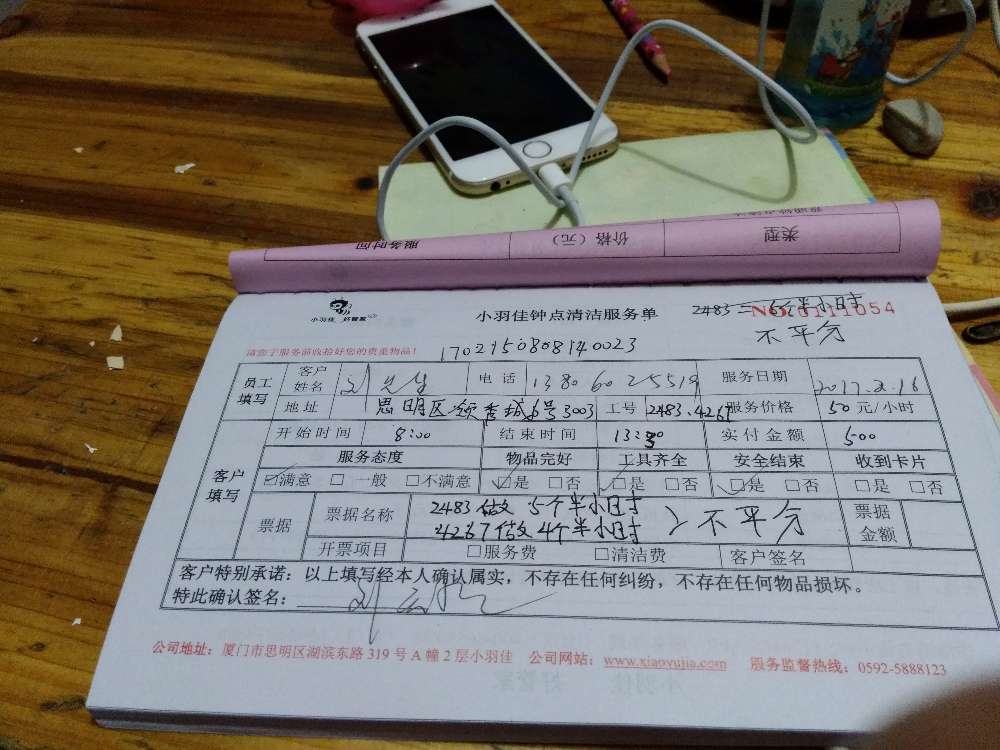 服务时间 价格（元） 类型
小羽佳 好管家
小羽佳钟点清洁服务单
2483 二 5个半小时
NO 0111054
不平分
请您于服务前收拾好您的贵重物品！
170215080814 0023
员工填写 客户姓名 刘先生 电话 13806025519 服务日期 2017.2.16
地址 思明区领秀城6号3003 工号 2483.4267 服务价格 50元/小时
客户填写 开始时间 8:00 结束时间 13:30 实付金额 500
服务态度 物品完好 工具齐全 安全结束 收到卡片
☑满意 □一般 □不满意 ☑是 □否 ☑是 □否 ☑是 □否 □是 □否
票据 票据名称 2483做 5个半小时 票据金额
4267做 4个半小时 > 不平分
开票项目 □服务费 □清洁费 客户签名
客户特别承诺：以上填写经本人确认属实，不存在任何纠纷，不存在任何物品损坏。
特此确认签名：
公司地址：厦门市思明区湖滨东路 319 号 A 幢 2 层小羽佳 公司网站：www.xiaoyujia.com 服务监督热线：0592-5888123